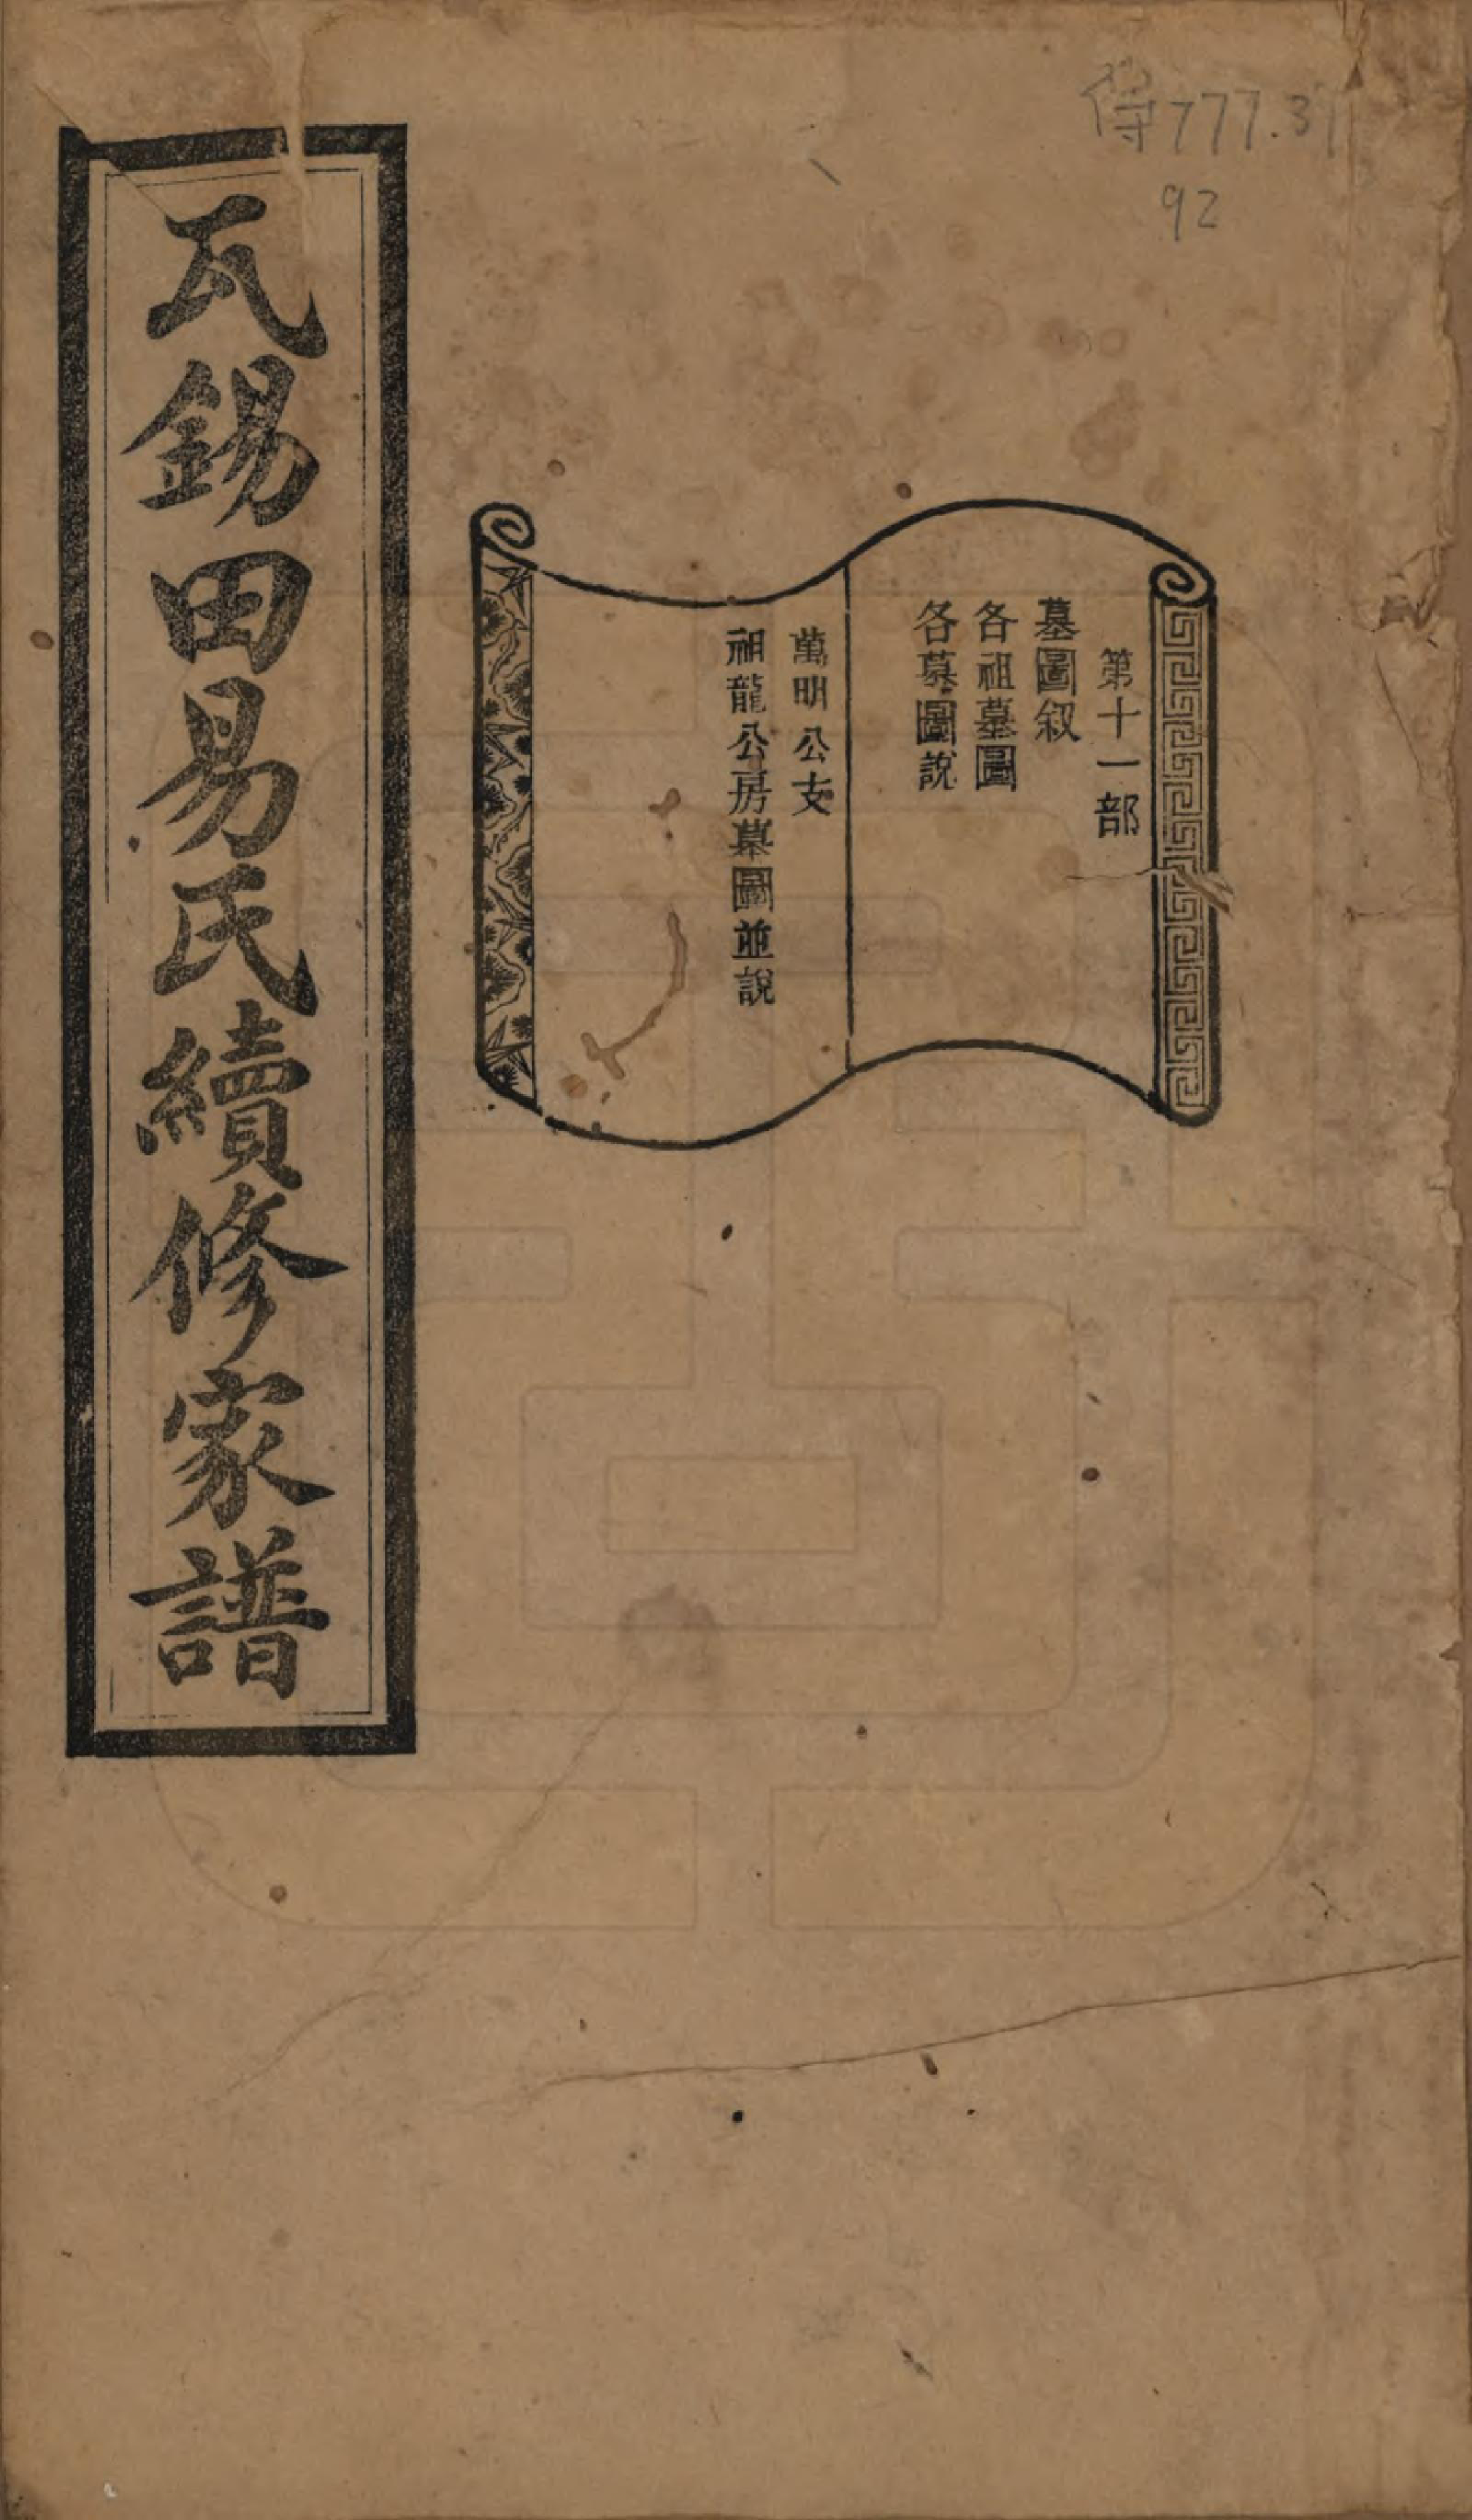 待777.37
92
第十一部
墓圖叙
各祖墓圖
各墓圖說
萬明公支
祖龍公房墓圖並說
瓦錫田易氏續修家譜